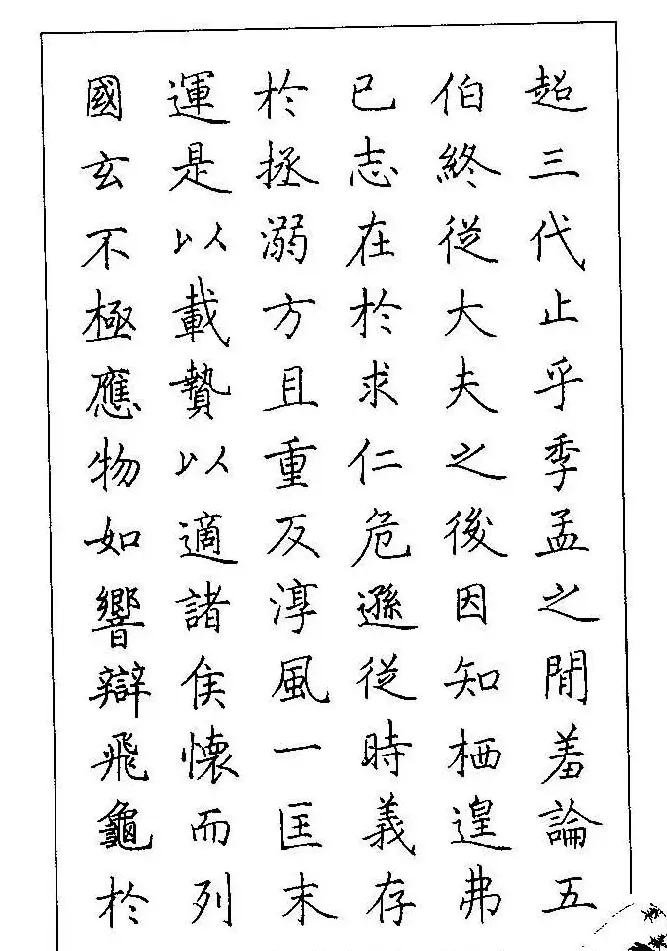 超三代止乎季孟之間羞論五
伯終從大夫之後因知栖遑弗
已志在於求仁危遜從時義存
於拯溺方且重反淳風一匡末
運是以載贄以適諸侯懷而列
國玄不極應物如響辯飛龜於